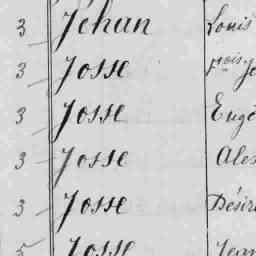 3 Jéhan Louis
3 Josse
3 Josse Eugè
3 Josse Ales
3 Josse Désiré
5 Josse Jean